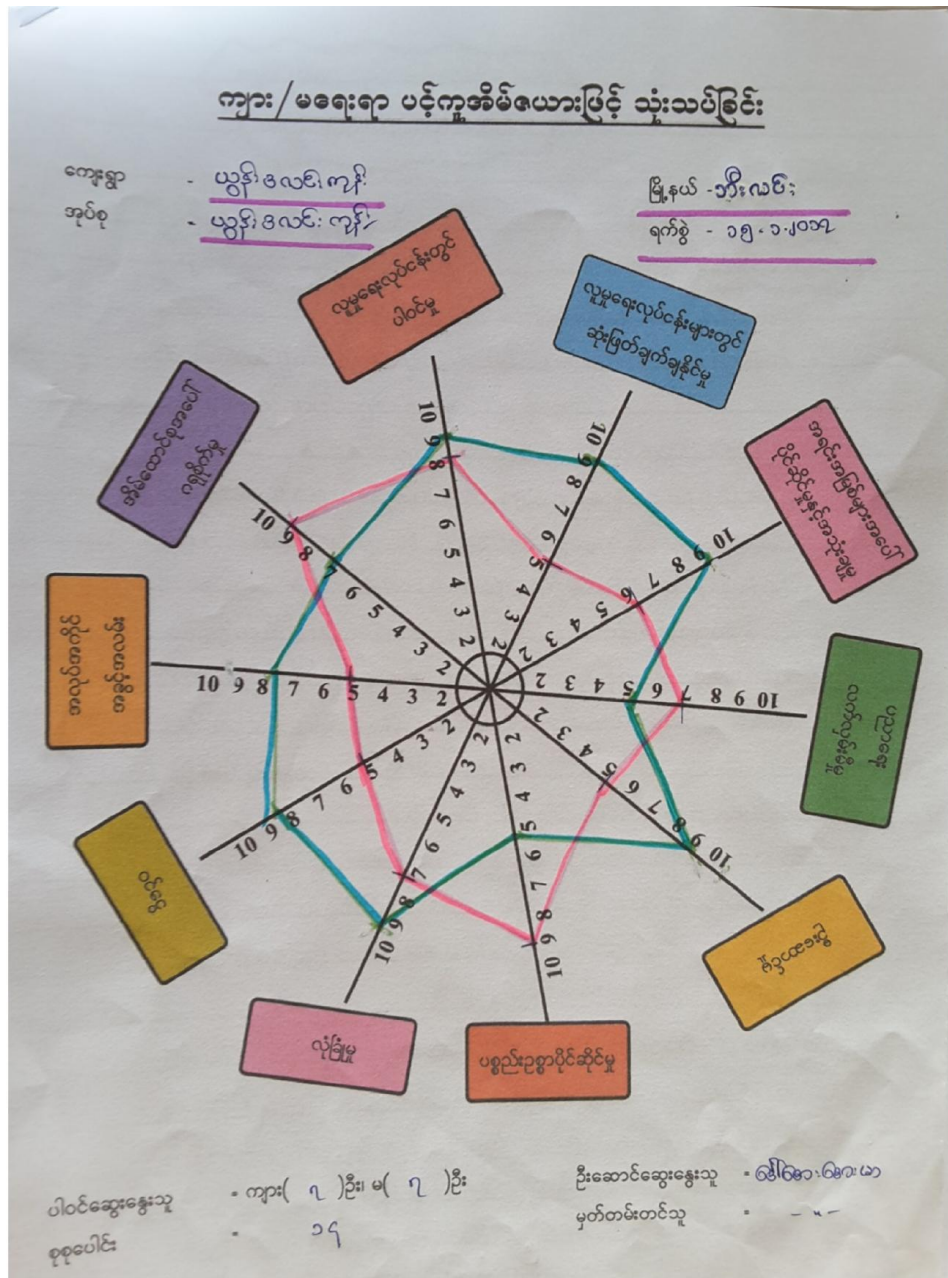 ကျား/မရေးရာ ပင့်ကူအိမ်ဇယားဖြင့် သုံးသပ်ခြင်း
ကျေးရွာ - ယွန်းဒလင်းကုန်း
အုပ်စု - ယွန်းဒလင်းကုန်း
မြို့နယ် - ဘီးလင်း
ရက်စွဲ - ၁၅.၁.၂၀၁၇
လူမှုရေးလုပ်ငန်းတွင်
ပါဝင်မှု
လူမှုရေးလုပ်ငန်းများတွင်
ဆုံးဖြတ်ချက်ချနိုင်မှု
အရင်းအမြစ်များအပေါ်
ပိုင်ဆိုင်မှုနှင့်အသုံးချမှု
ပညာရေး
ခွဲတမ်း
ပစ္စည်းဥစ္စာပိုင်ဆိုင်မှု
လုံခြုံမှု
ဝင်ငွေ
အလုပ်အကိုင်
အခွင့်အလမ်း
အိမ်ထောင်စုအပေါ်
ဂရုစိုက်မှု
10 9 8 7 6 5 4 3 2
10 9 8 7 6 5 4 3 2
10 9 8 7 6 5 4 3 2
10 9 8 7 6 5 4 3 2
10 9 8 7 6 5 4 3 2
10 9 8 7 6 5 4 3 2
10 9 8 7 6 5 4 3 2
10 9 8 7 6 5 4 3 2
10 9 8 7 6 5 4 3 2
10 9 8 7 6 5 4 3 2
ပါဝင်ဆွေးနွေးသူ - ကျား( ၇ )ဦး၊ မ( ၇ )ဦး
စုစုပေါင်း - ၁၄
ဦးဆောင်ဆွေးနွေးသူ -
မှတ်တမ်းတင်သူ - -〃-